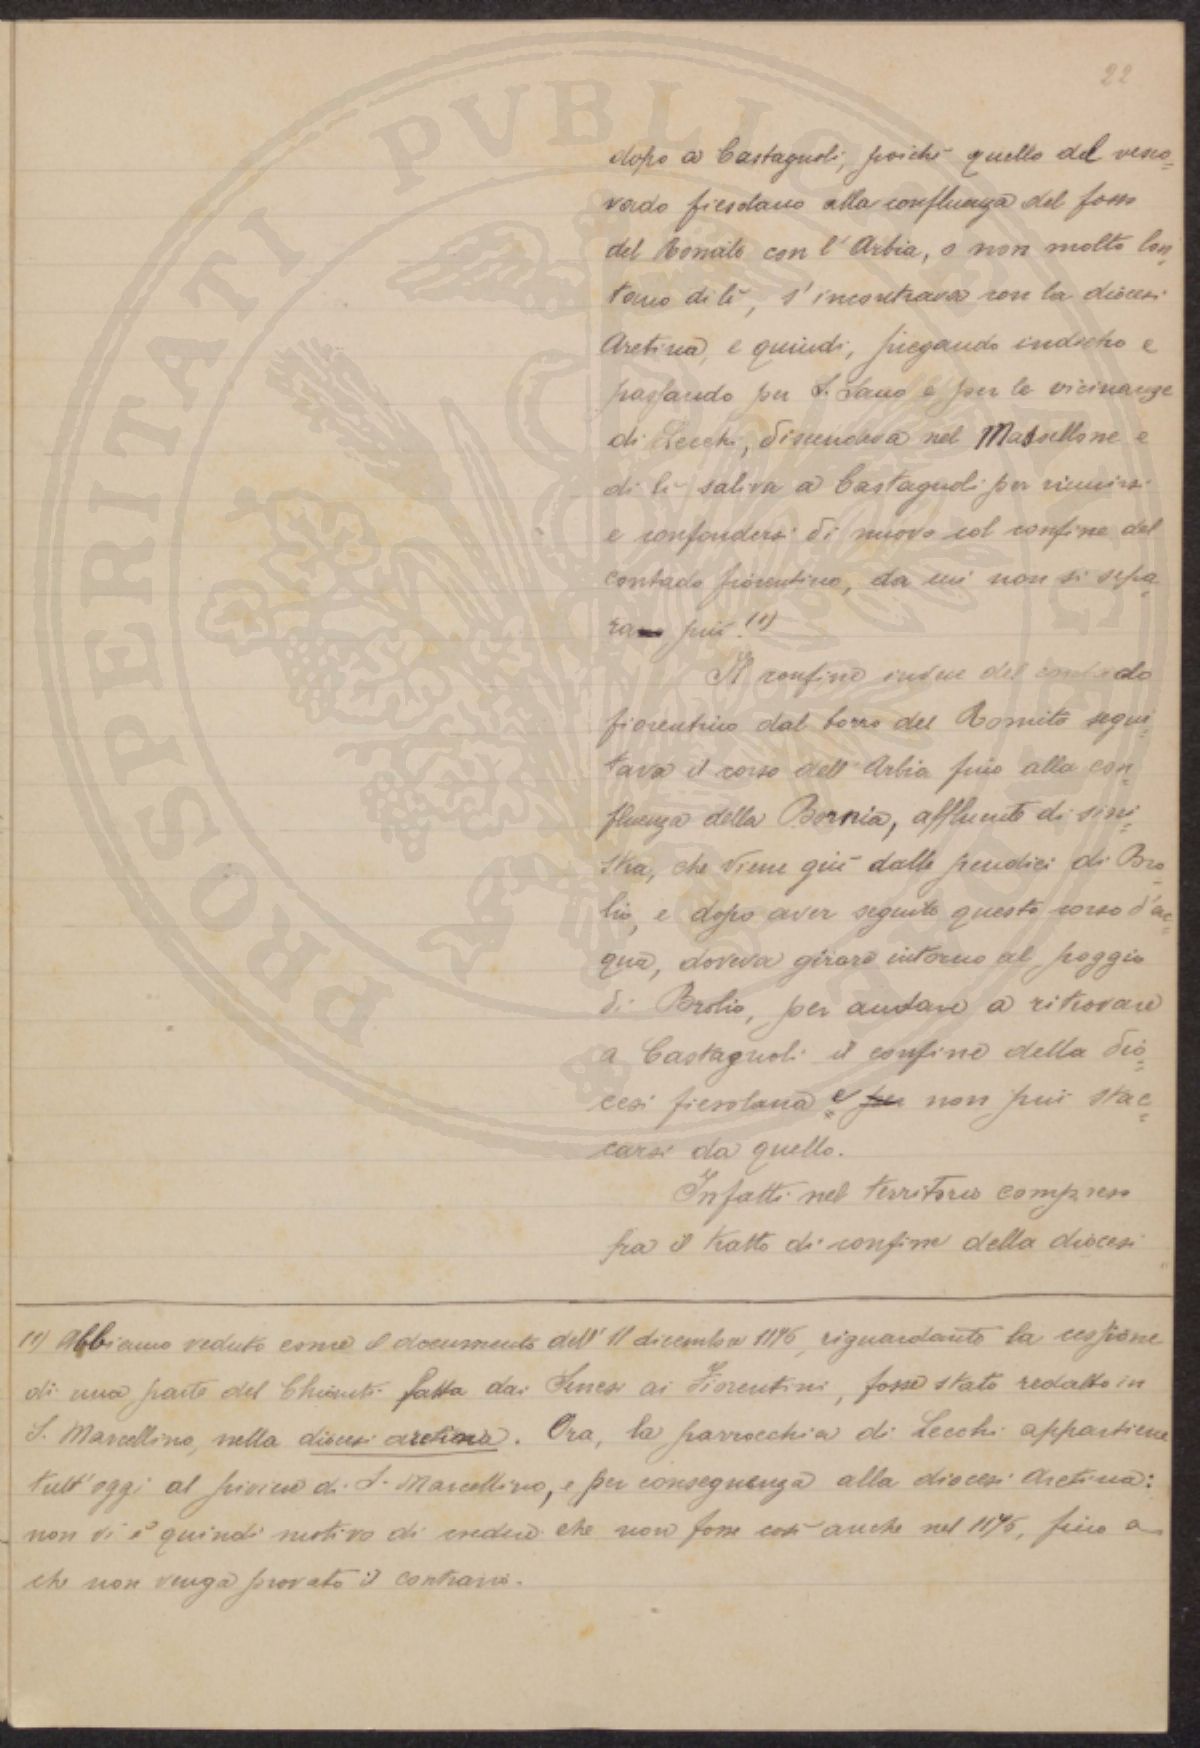 22
dopo a Castagnoli, poichè quello del vesco=
vado fiesolano alla confluenza del fosso
del Romito con l'Arbia, o non molto lon=
tano di lì, s'incontrava con la diocesi
Aretina, e quindi, piegando indietro e
passando per S. Sano e per le vicinanze
di Lecchi, discendeva nel Massellone e
di lì saliva a Castagnoli per riunirsi
e confondersi di nuovo col confine del
contado fiorentino, da cui non si sepa=
ra più. (1)
Il confine invece del contado
fiorentino dal borro del Romito segui=
tava il corso dell'Arbia fino alla con=
fluenza della Bornia, affluente di sini=
stra, che viene giù dalle pendici di Bro=
lio, e dopo aver seguito questo corso d'ac=
qua, doveva girare intorno al poggio
di Brolio, per andare a ritrovare
a Castagnoli il confine della dio=
cesi fiesolana e per non più stac=
carsi da quello.
Infatti nel territorio compreso
fra il tratto di confine della diocesi
(1) Abbiamo veduto come il documento dell'11 dicembre 1176, riguardante la cessione
di una parte del Chianti fatta dai Senesi ai Fiorentini, fosse stato redatto in
S. Marcellino, nella diocesi aretina. Ora, la parrocchia di Lecchi appartiene
tutt'oggi al piviere di S. Marcellino, e per conseguenza alla diocesi Aretina:
non vi è quindi motivo di credere che non fosse così anche nel 1176, fino a
che non venga provato il contrario.
PROSPERITATI PVBLICAE